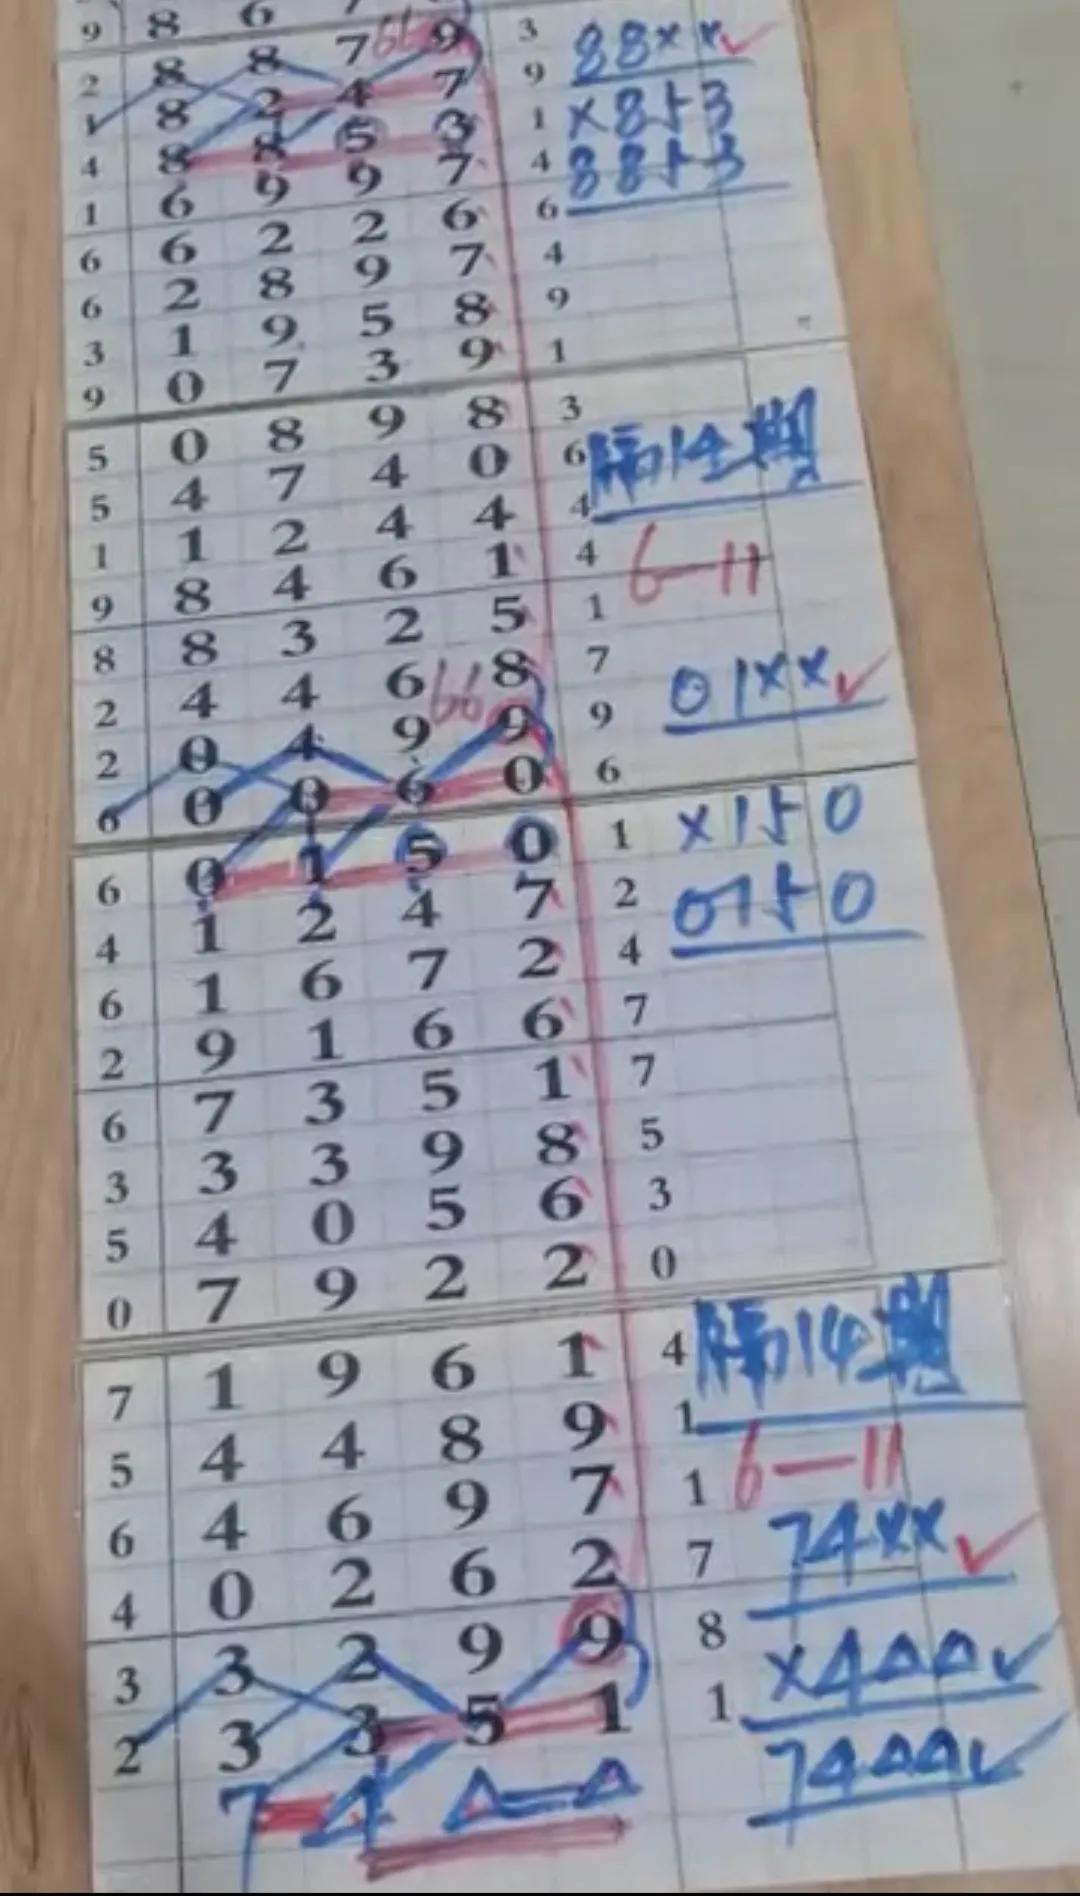 9 8 6 7 3
2 8 8 7 66 9 9 88××✓
1 8 2 4 7 1 ×853
4 8 8 5 3 4 8853
1 6 9 9 7 6
6 6 2 2 6 4
6 2 8 9 7 9
3 1 9 5 8 1
9 0 7 3 9
5 0 8 9 8 3
5 4 7 4 0 6 隔14期
1 1 2 4 4 4
9 8 4 6 1 4 6—11
8 8 3 2 5 1
2 4 4 6 8 7
2 0 4 9 66 9 9 01××✓
6 0 0 6 0 6
6 0 1 5 0 1 ×150
4 1 2 4 7 2 0150
6 1 6 7 2 4
2 9 1 6 6 7
6 7 3 5 1 7
3 3 3 9 8 5
5 4 0 5 6 3
0 7 9 2 2 0
7 1 9 6 1 4 隔14期
5 4 4 8 9 1
6 4 6 9 7 1 6—11
4 0 2 6 2 7 74××✓
3 3 2 9 9 8 ×4△△✓
2 3 3 5 1 1 74△△✓
7 4 △ △